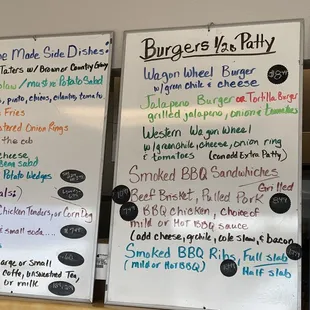 me Made Side Dishes:
Taters w/ Brown or Country Gravy
slaw / mustard Potato Salad
, pinto, chiles, cilantro, tomato
Fries
Battered Onion Rings
the cob
cheese
Potato Wedges
Chicken Tenders, or Corn Dog
small soda
arge or Small
coffee, unsweetned Tea,
or milk
Burgers 1/2lb Patty
Wagon Wheel Burger
w/green chile & cheese
Jalapeno Burger or Tortilla Burger
grilled jalapeno, onion & tomatoes
Western Wagon Wheel
w/greenchile, cheese, onion ring
& tomatoes (can add Extra Patty)
Smoked BBQ Sandwiches
Grilled
Beef Brisket, Pulled Pork
BBQ chicken, choice of
mild or Hot BBQ sauce
(add cheese, grchile, cole slaw, & bacon)
Smoked BBQ Ribs, Full slab
(mild or Hot BBQ) Half slab